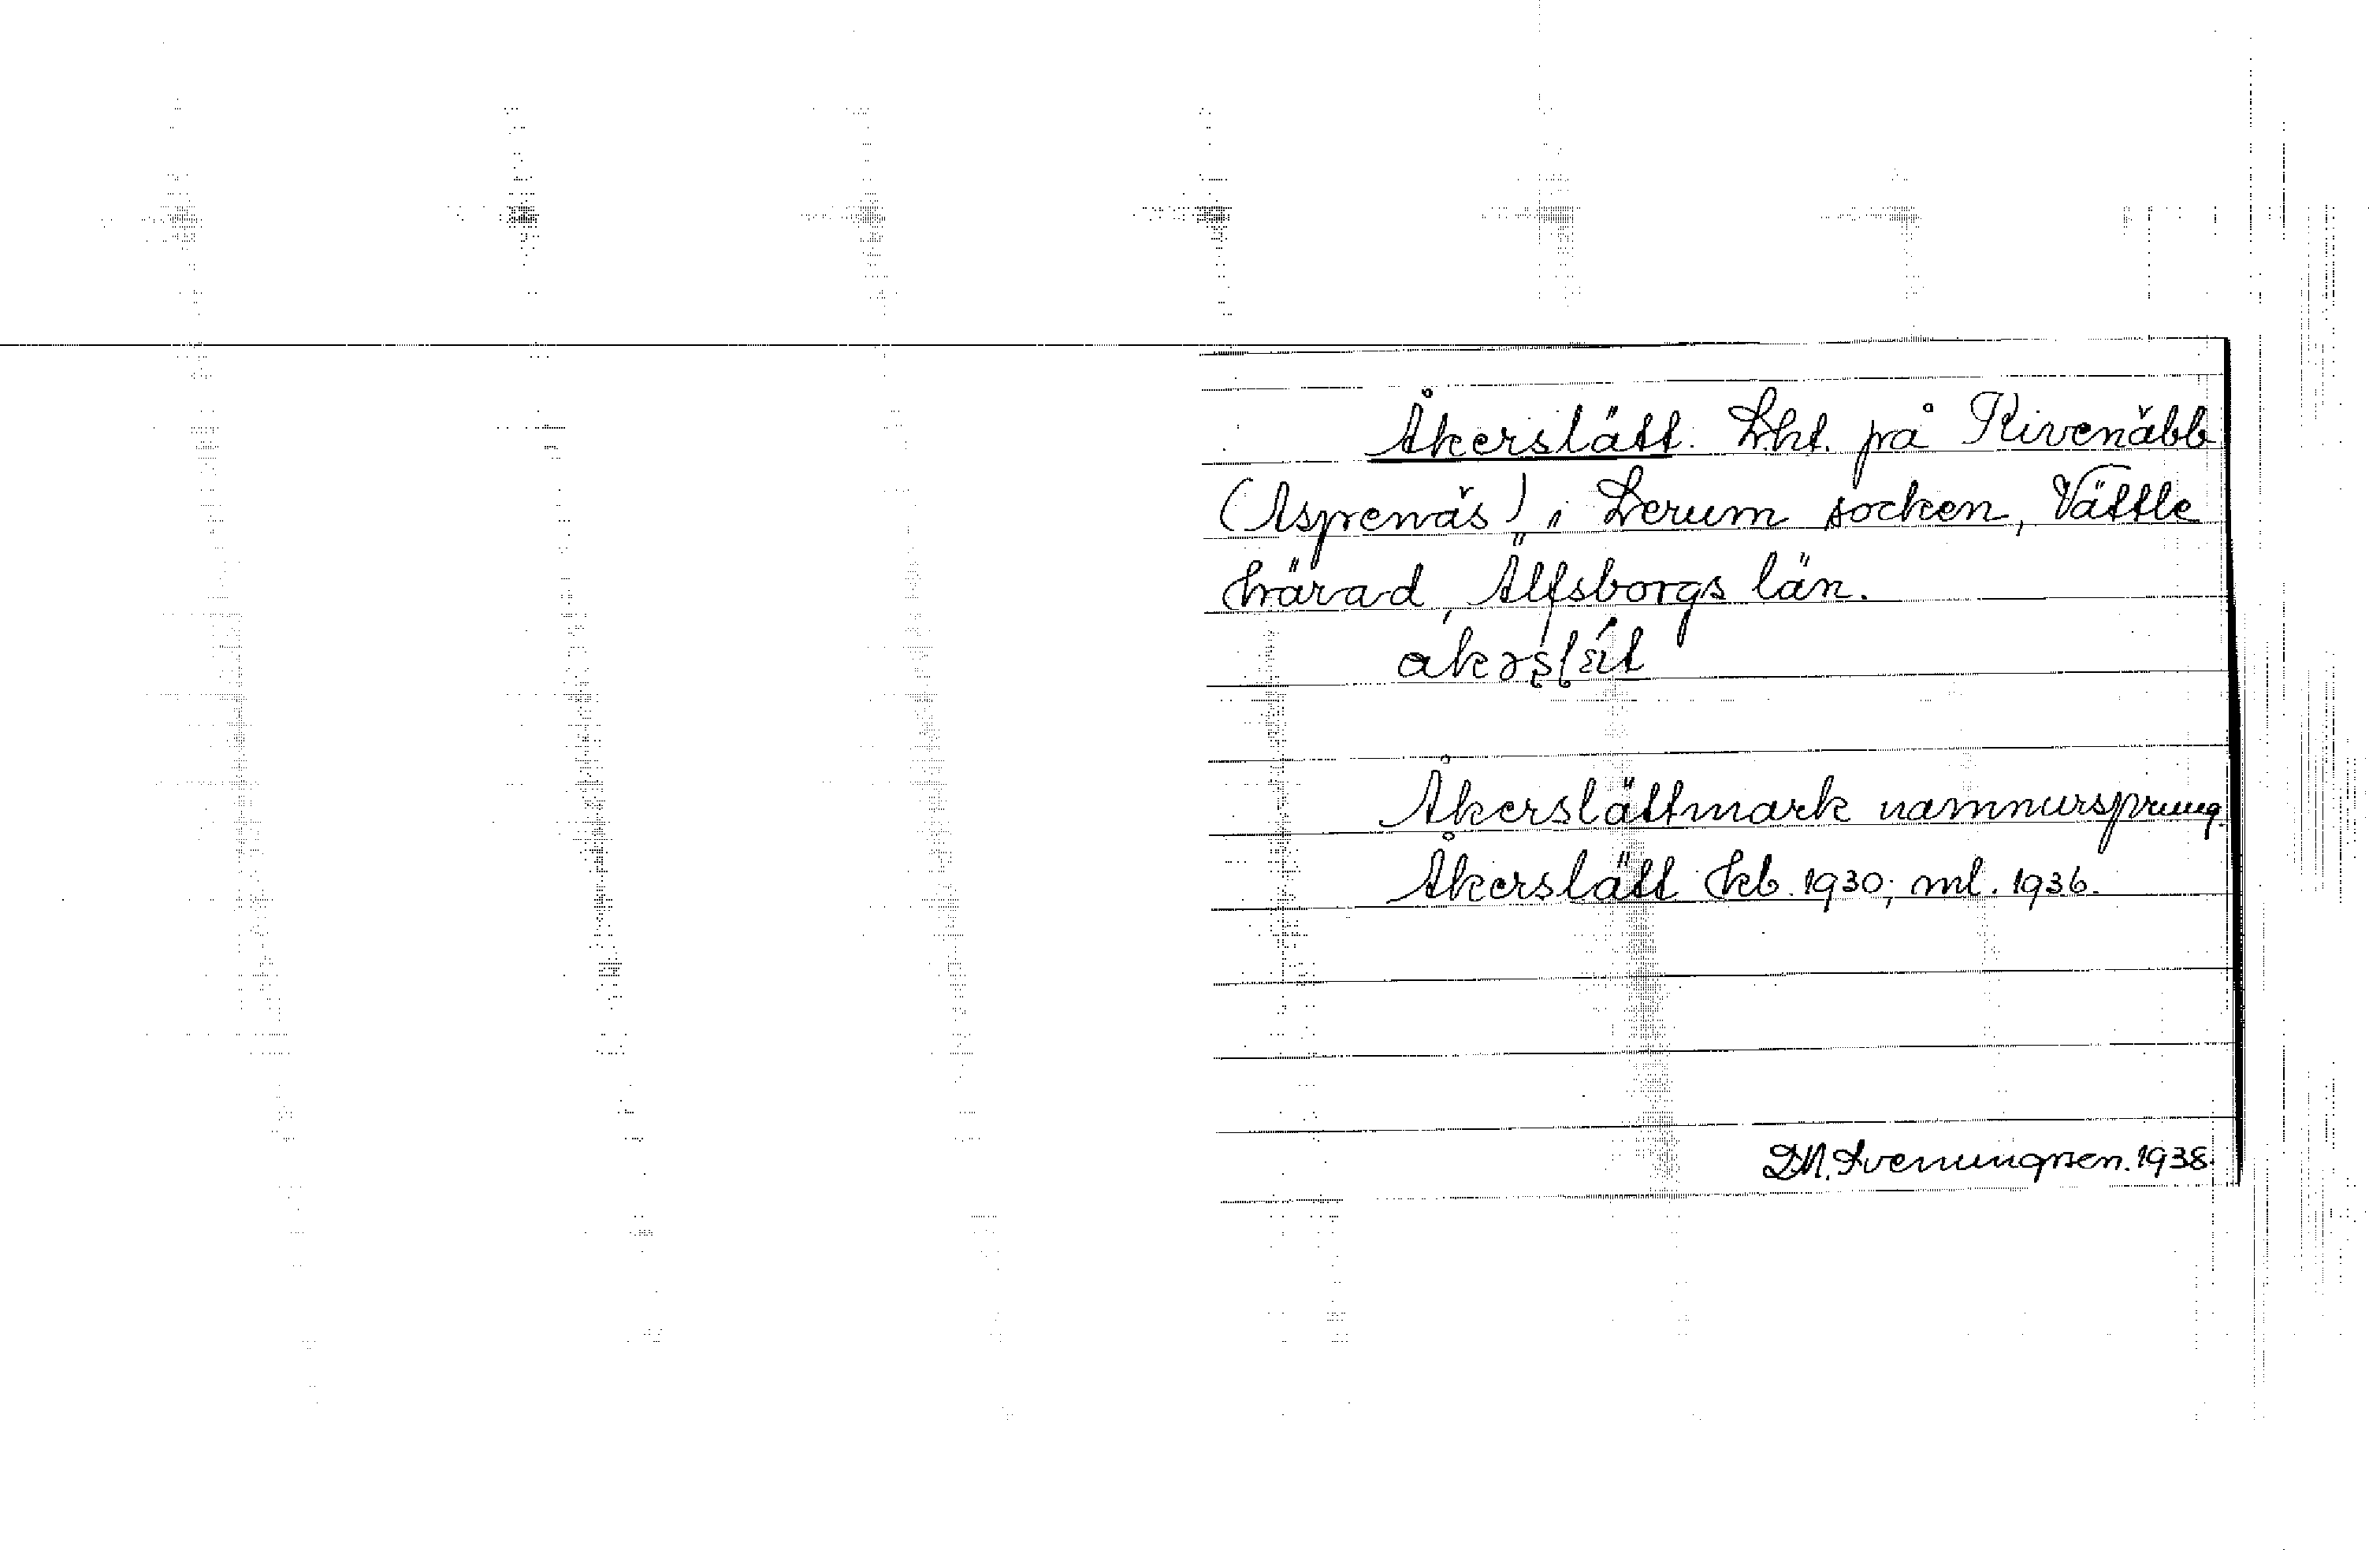 Åkerslätt. Lht. på Rivenäbb
(Aspenäs) i Lerum socken, Vättle
härad, Älfsborgs län.
Åkerslättmark namnursprung.
Åkerslätt kb. 1930; ml. 1936.
D.N. Svenungsen. 1938.